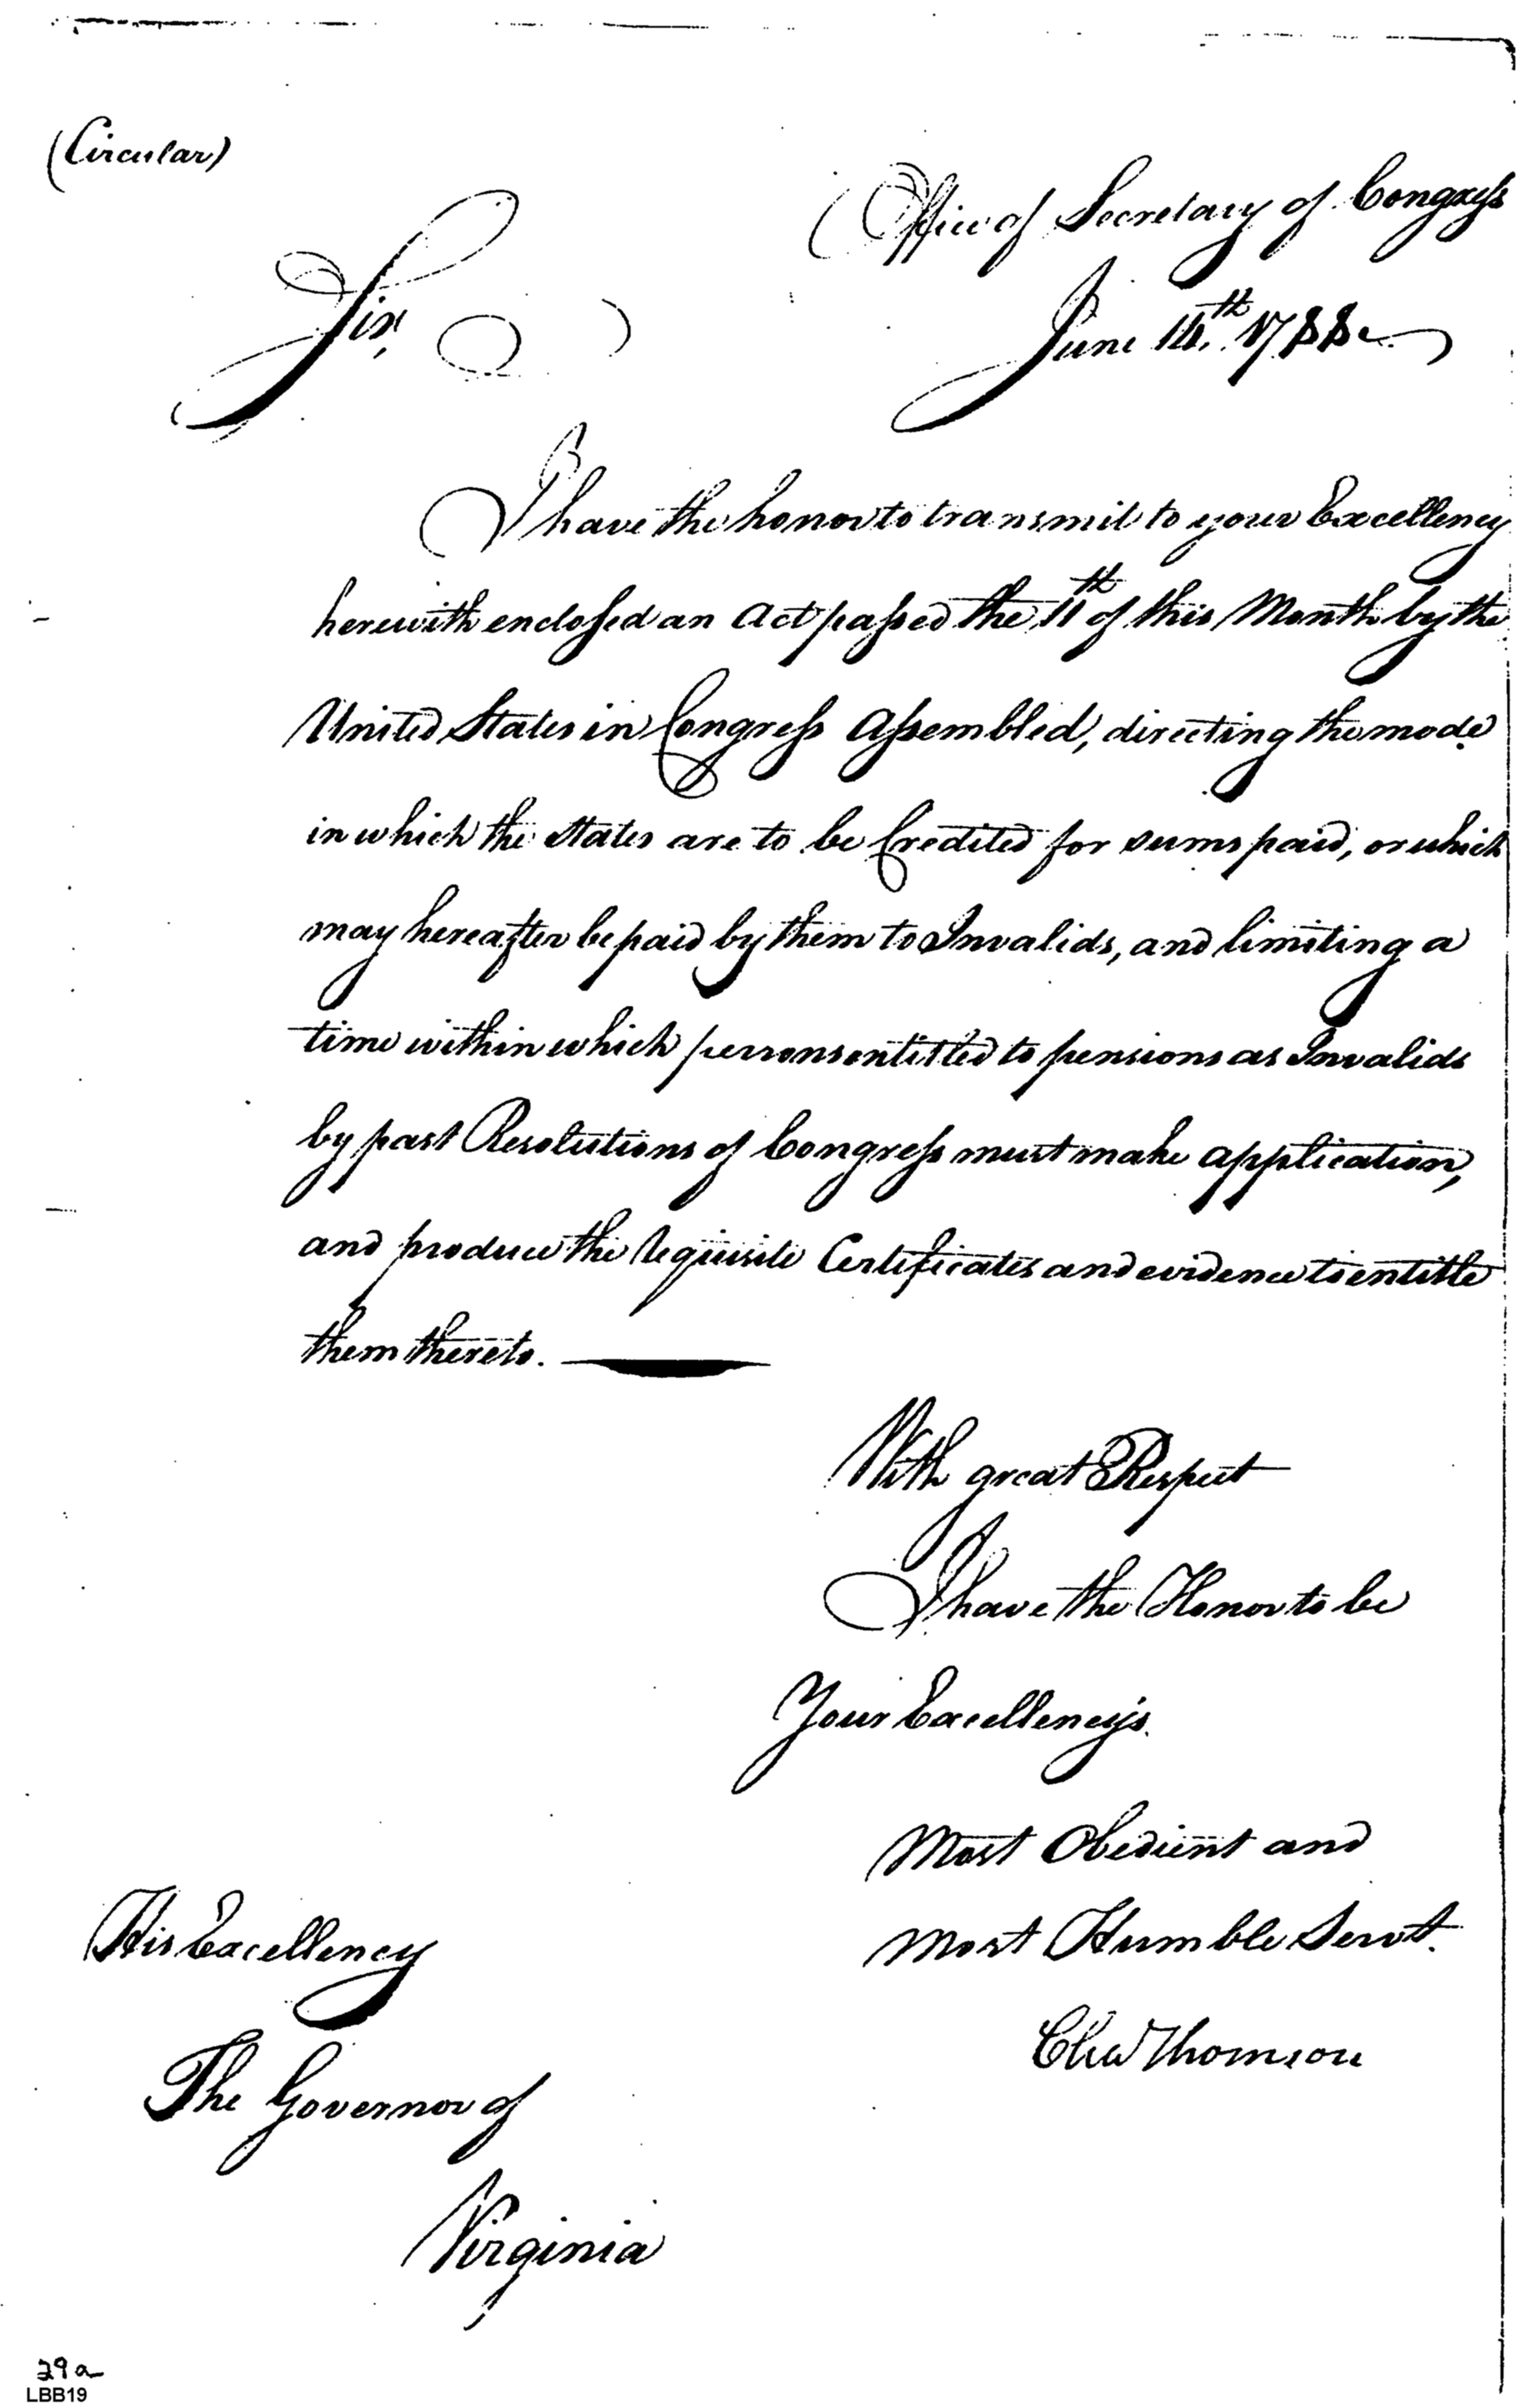 (Circular)
Office of Secretary of Congress
Sir,
June 14.th 1788
I have the honor to transmit to your Excellency
herewith enclosed an Act passed the 11th of this Month by the
United States in Congress Assembled, directing the mode
in which the States are to be Credited for sums paid, or which
may hereafter be paid by them to Invalids, and limiting a
time within which persons entitled to pensions as Invalids
by past Resolutions of Congress must make application,
and produce the requisite Certificates and evidence to entitle
them thereto.
With great Respect
I have the Honor to be
Your Excellency's
Most Obedient and
Most Humble Servt.
Chas Thomson
His Excellency
The Governor of
Virginia
29a
LBB19